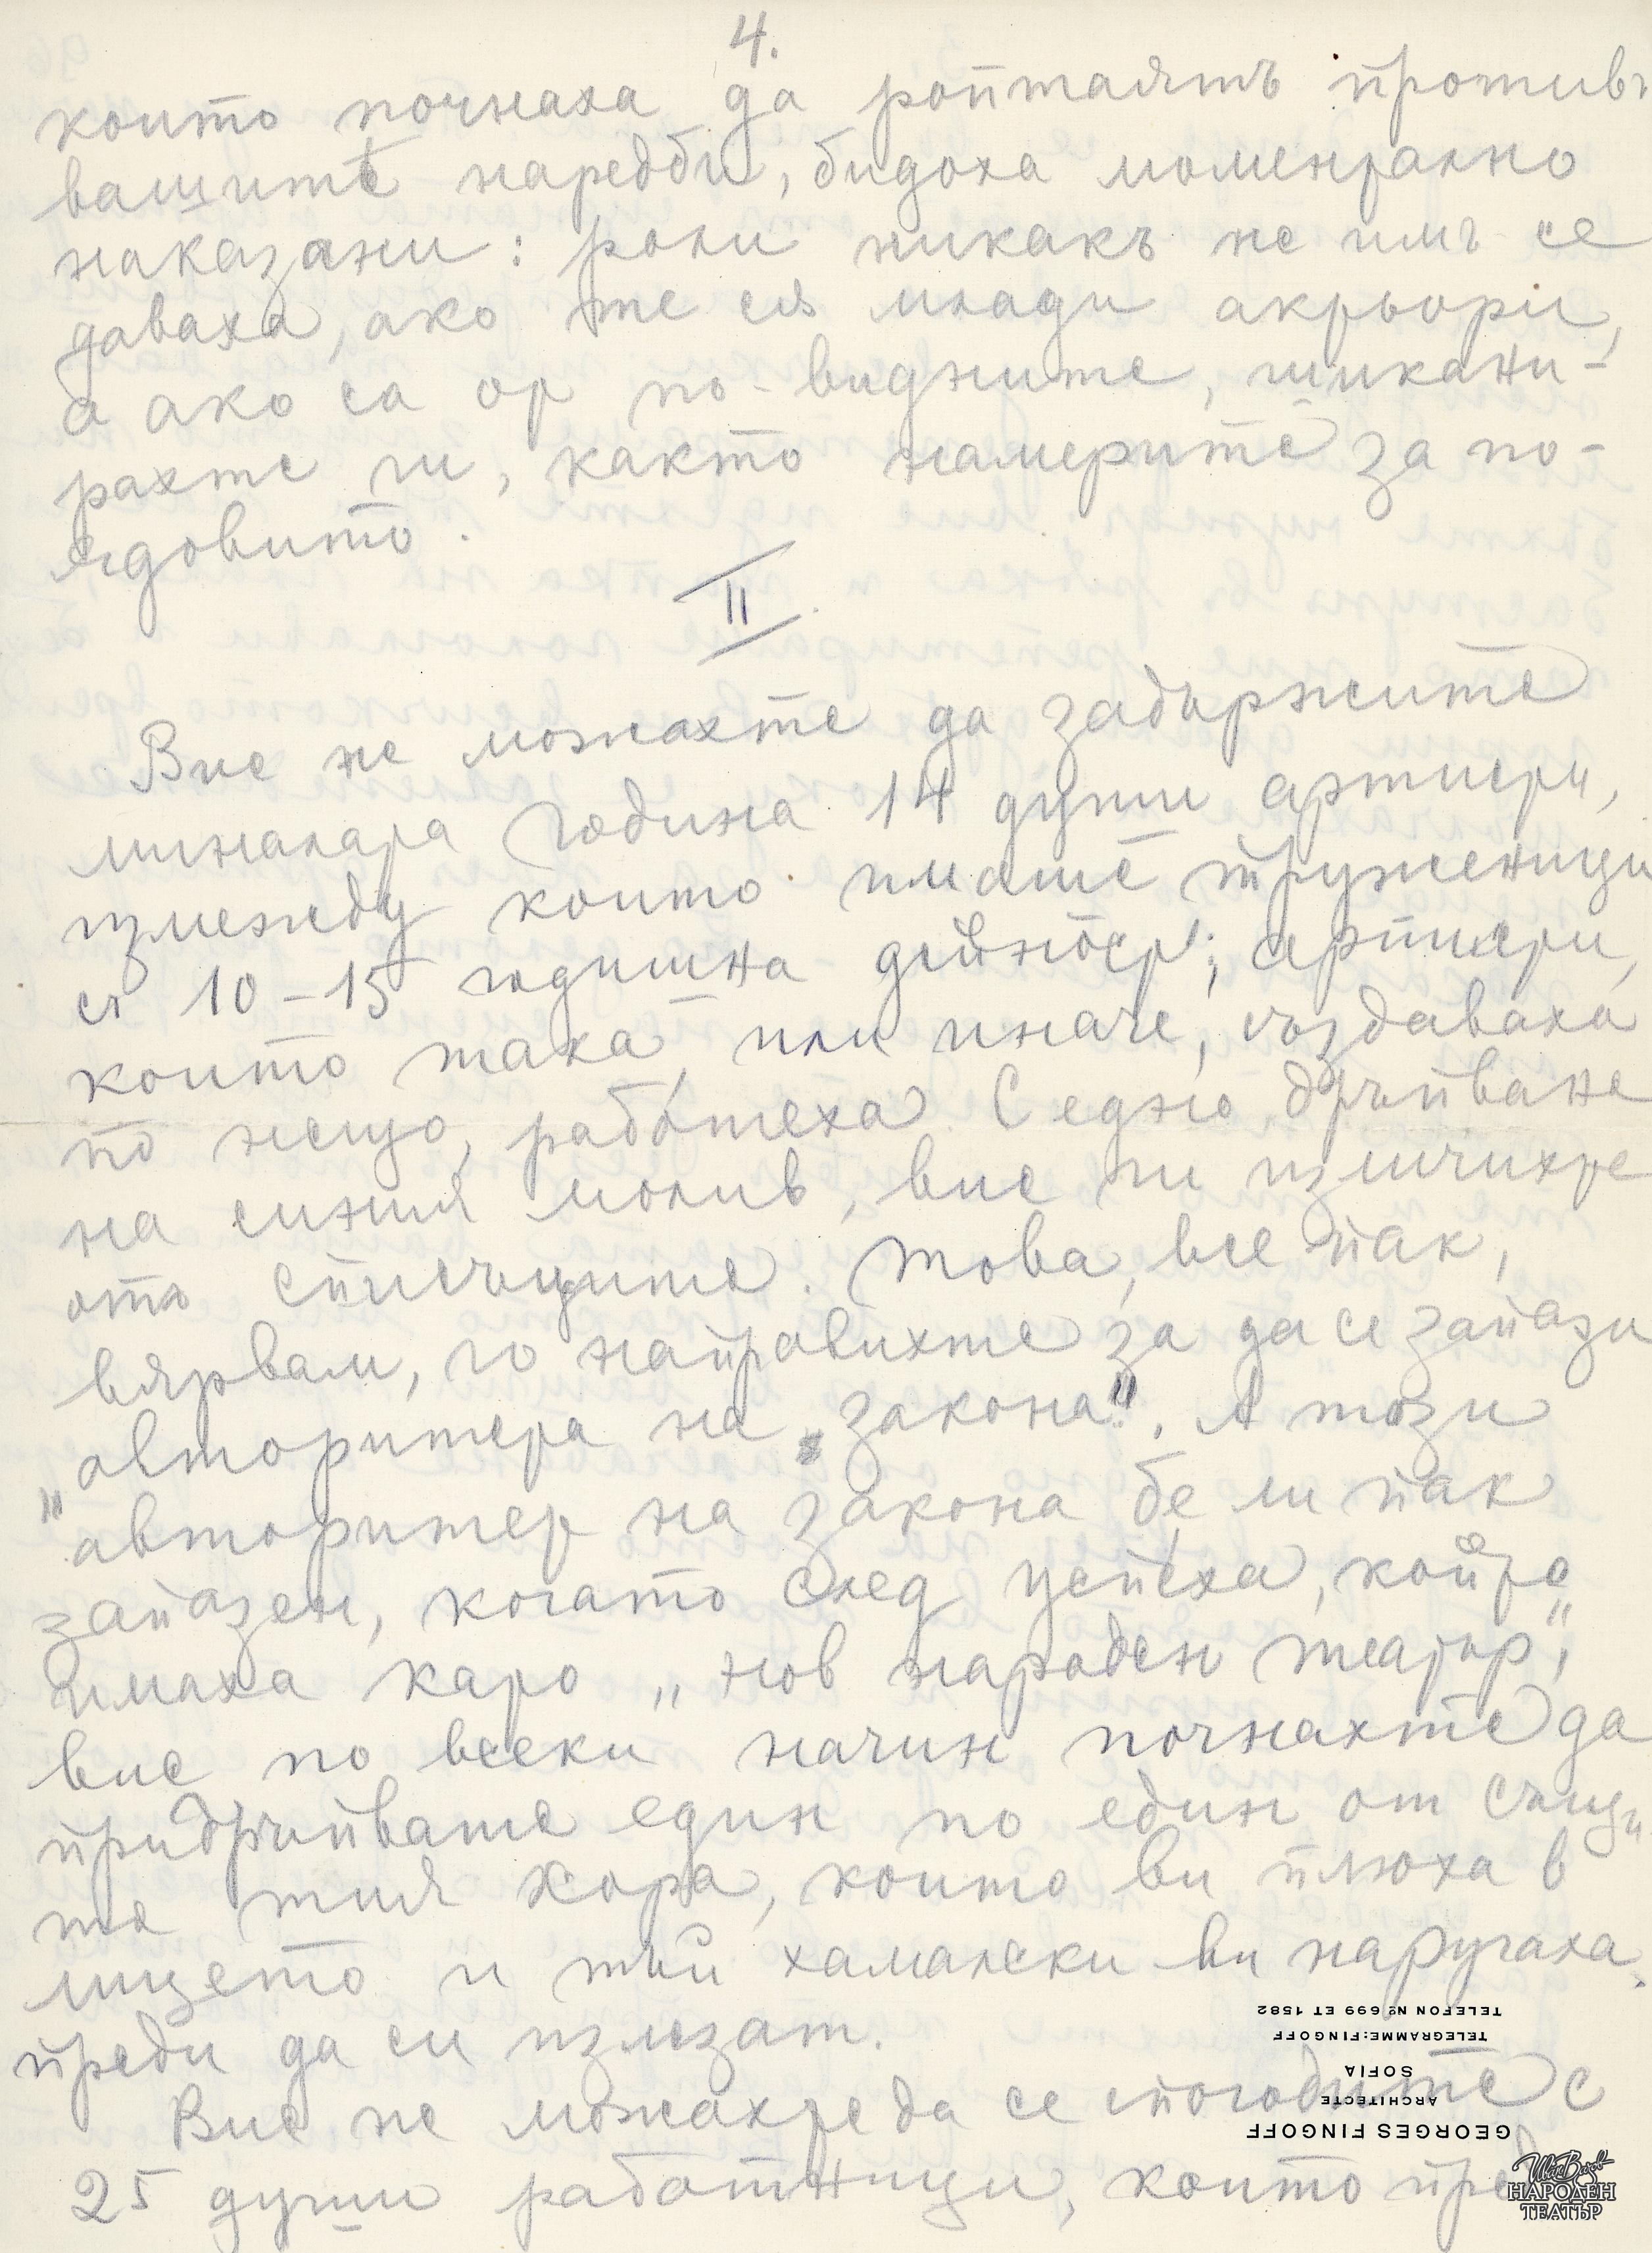 4.
които почнаха да роптаятъ противъ
вашитѣ наредби, бидоха моментално
наказани: роли никакъ не имъ се
даваха, ако те ся млади актьори,
а ако са от по-видните, шикани-
рахте ги, както намерите за по-
ядовито.
II
Вие не можахте да задържите
миналата година 14 души артисти,
измежду които имаше труженици
съ 10-15 годишна дейност; артисти,
които така, или иначе, създаваха
по нещо, работеха. С едно дръпване
на синия молив, вие ги изличихте
отъ списъците. Това, все пак,
вярвам, го направихте за да се запази
"авторитета на "закона". А този
авторитет на закона бе ли пак
запазен, когато след успеха, който
имаха като „нов народен театър",
вие по всеки начин почнахте да
придръпвате един по един от същи
те тия хора, които ви плюха в
лицето и тъй хамалски ви наругаха,
преди да си излезат.
Вие не можахте да се спогодите с
25 души работници, които пред
GEORGES FINGOFF
ARCHITECTE
SOFIA
TELEGRAMME: FINGOFF
TELEFON № 699 ET 1582
Иван Вазов
НАРОДЕН
ТЕАТЪР